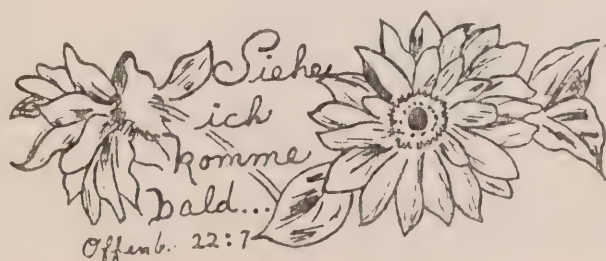 Siehe
ich
komme
bald...
Offenb. 22:7